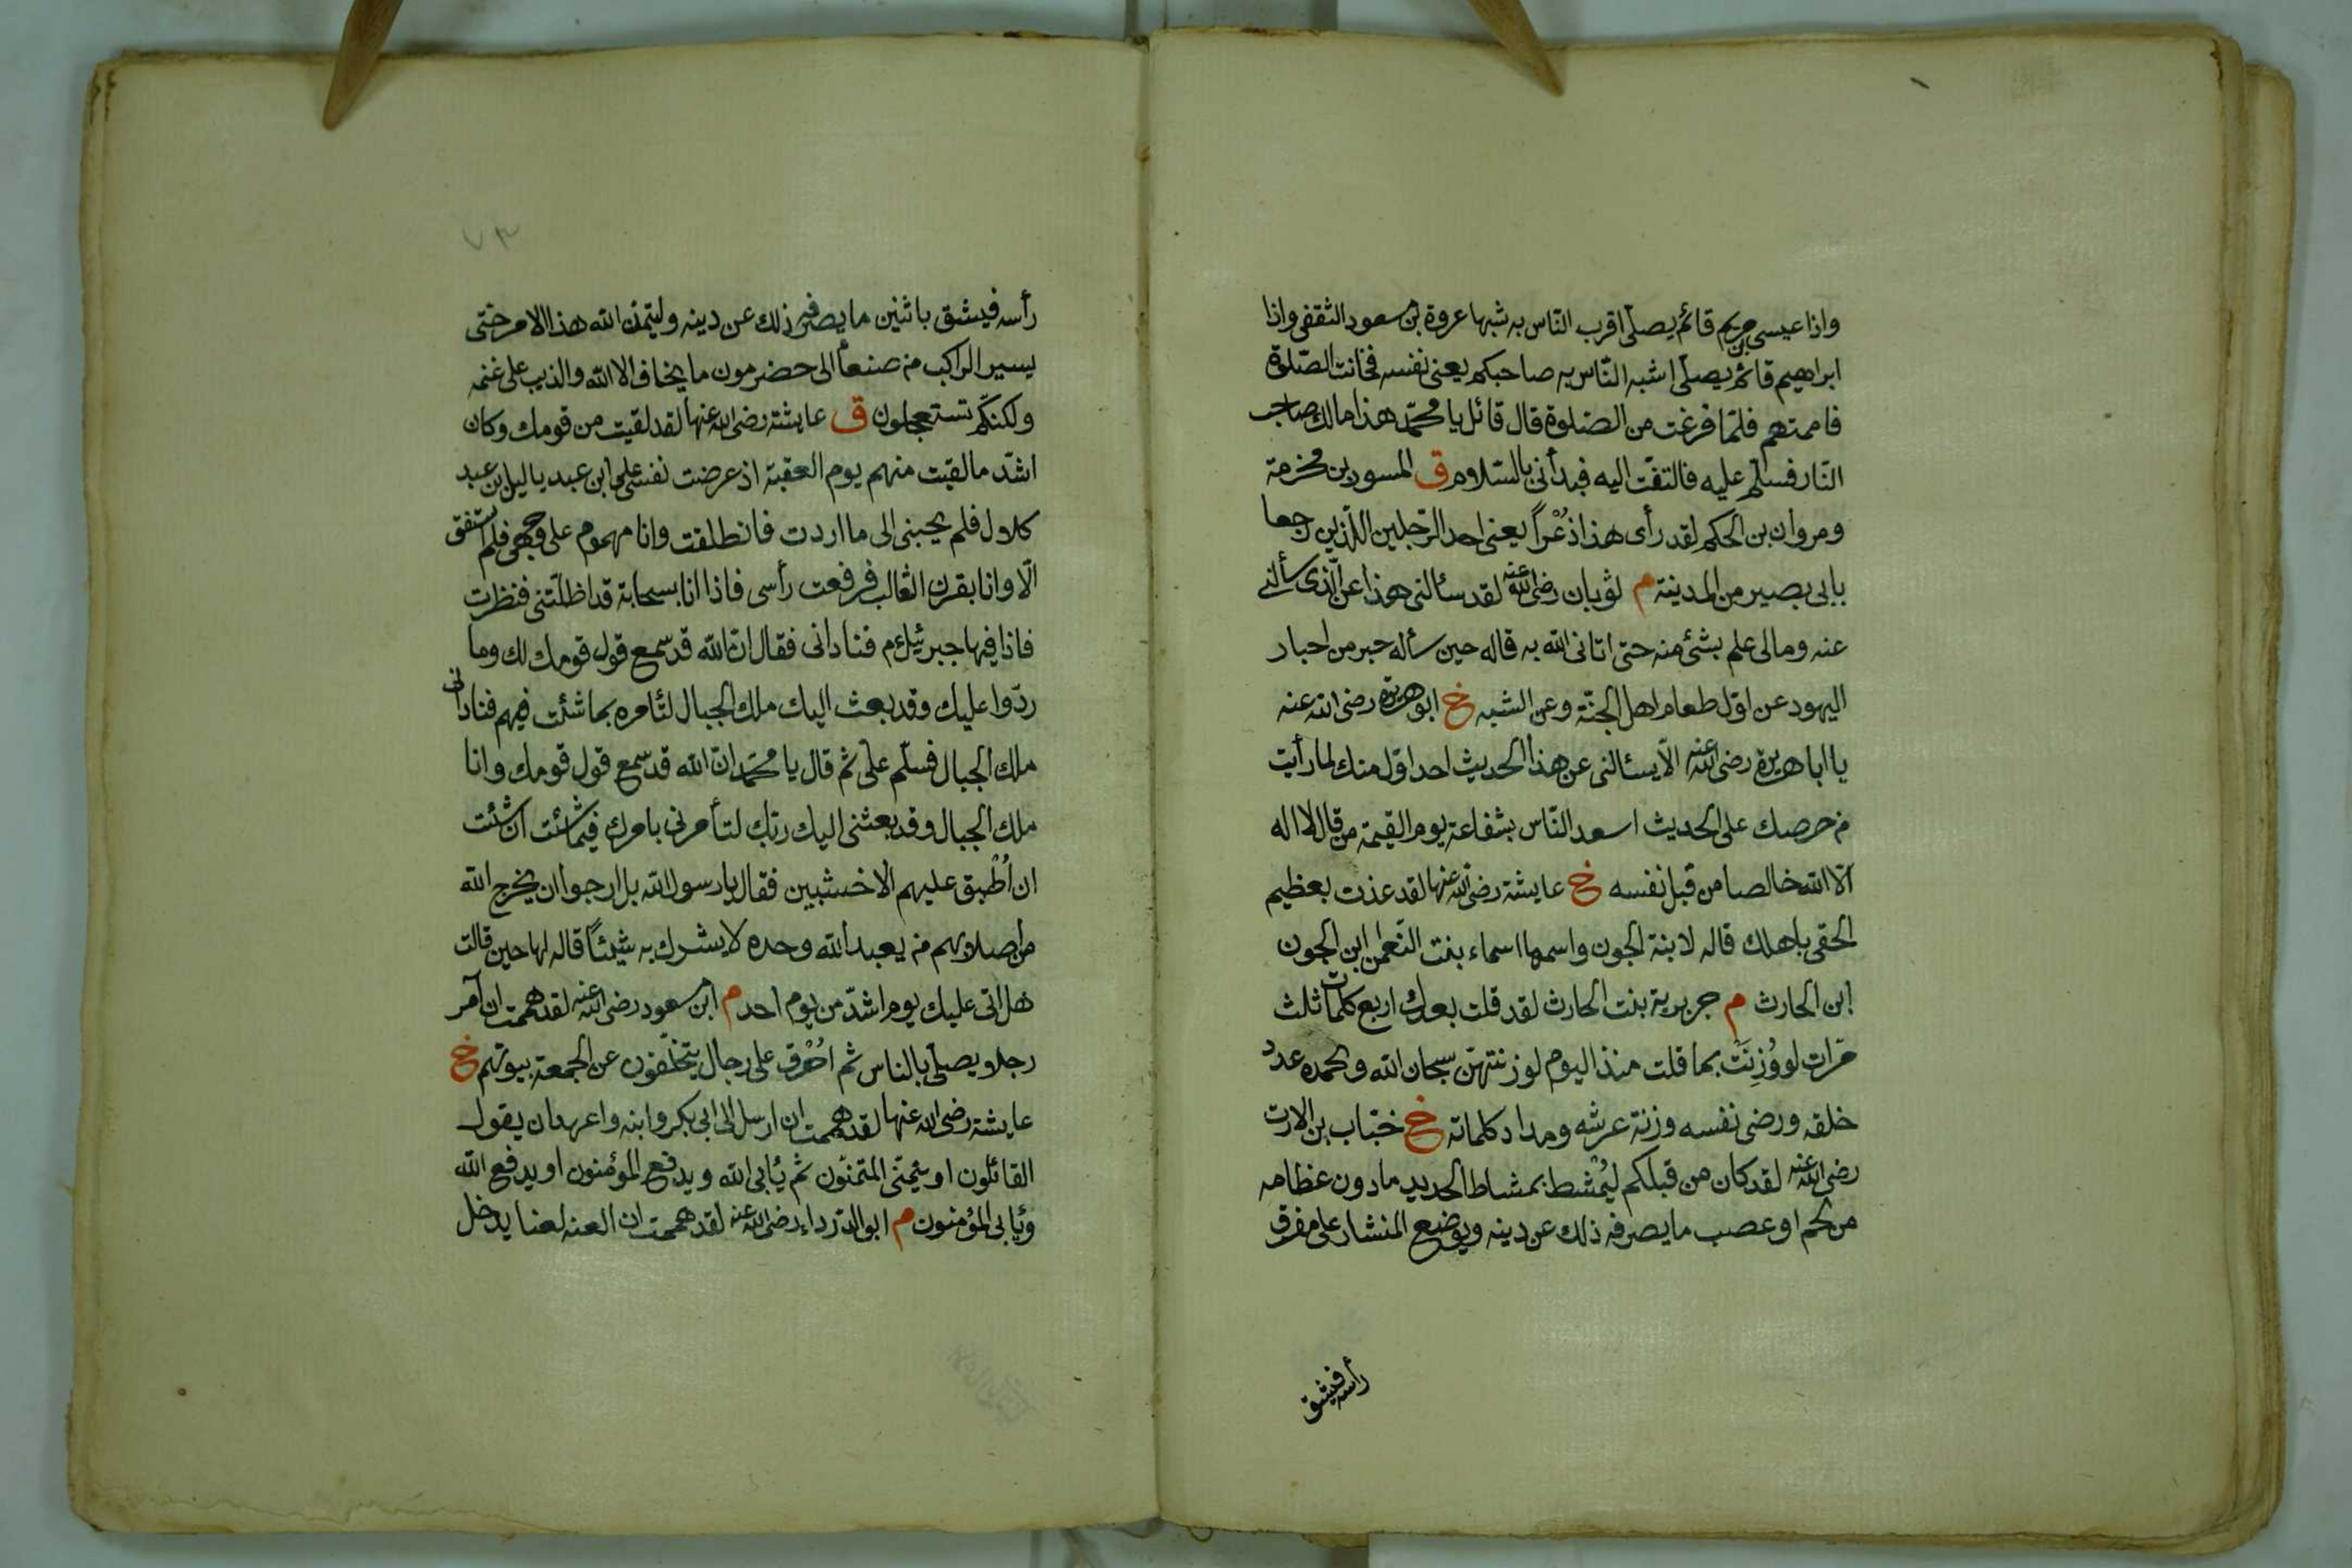 واذا عيسى بن مريم قائم يصلّى اقرب النّاس به شبها عروة بن مسعود الثقفى واذا
ابراهيم قائم يصلّى اشبه النّاس به صاحبكم يعنى نفسه فحانت الصّلوة
فاممتهم فلمّا فرغت من الصّلوة قال قائل يا محمّد هذا مالك صاحب
النّار فسلّم عليه فالتفتّ اليه فبدأنى بالسّلام ق المسور بن مخزمة
ومروان بن الحكم لقد رأى هذا ذُعْراً يعنى احد الرّجلين اللّذين رجعا
بابى بصير من المدينة م ثوبان رضى الله عنه لقد سئالنى هذا عن الّذى سألنى
عنه ومالى علم بشئ منه حتى اتانى الله به قاله حين سأله حبر من احبار
اليهود عن اوّل طعام اهل الجنّة وعن الشبه خ ابو هريرة رضى الله عنه
يا ابا هريرة رضى الله عنه الّا يسئالنى عن هذا الحديث احد اوّل منك لما رأيت
من حرصك على الحديث اسعد النّاس بشفاعتى يوم القيمة من قال لا اله
الّا الله خالصا من قبل نفسه خ عايشة رضى الله عنها لقد عذت بعظيم
الحقى باهلك قاله لابنة الجون واسمها اسماء بنت النّعمن ابن الجون
ابن الحارث م جريرية بنت الحارث لقد قلت بعدك اربع كلمات ثلث
مرّات لو وُزِنَتْ بما قلت منذ اليوم لوزنتهنّ سبحان الله وبحمده عدد
خلقه ورضى نفسه وزنة عرشه ومداد كلماته خ خبّاب بن الارت
رضى الله عنه لقد كان من قبلكم ليُمْشط بمشاط الحديد ما دون عظامه
من لحم او عصب ما يصرفه ذلك عن دينه ويوضع المنشار على مفرق
رأسه فيشق
٧٣
رأسه فيشق باثنين ما يصرفه ذلك عن دينه وليتمّن الله هذا الامر حتى
يسير الراكب من صنعأ الى حضرمون ما يخاف الا الله والذيب على غنمه
ولكنّكم تستعجلون ق عايشة رضى الله عنها لقد لقيت من قومك وكان
اشدّ ما لقيت منهم يوم العقبة اذ عرضت نفسى على ابن عبد ياليل بن عبد
كلاول فلم يحبنى الى ما اردت فانطلقت وانا مهموم على وجهى فلم استفق
الّا وانا بقرن الثّالب فرفعت رأسى فاذا انا بسحابة قد اظلّتنى فنظرت
فاذا فيها جبرئيل ءم فنادانى فقال انّ الله قد سمع قول قومك لك وما
ردّوا عليك وقد بعث اليك ملك الجبال لتأمره بما شئت فيهم فنادانى
ملك الجبال فسلّم علىّ ثم قال يا محمّد انّ الله قد سمع قول قومك وانا
ملك الجبال وقد بعثنى اليك ربّك لتأمرنى بامرك فيما شئت ان شئت
ان اُطْبق عليهم الاخشبين فقال يا رسول الله بل ارجوا ان يخرج الله
من اصلابهم من يعبد الله وحده لا يشرك به شيئاً قاله لها حين قالت
هل اتى عليك يوم اشدّ من يوم احد م ابن مسعود رضى الله عنه لقد هممت ان آمر
رجلا و يصلّى بالناس ثم احُرْق على رجال يتخلّفون عن الجمعة بيوتهم خ
عايشة رضى الله عنها لقد هممت ان ارسل الى ابى بكر وابنه واعهد ان يقول
القائلون او يتمنّى المتمنّون ثم يُابى الله ويدفع المؤمنون او يدفع الله
ويُابى المؤمنون م ابو الدّرداء رضى الله عنه لقد هممت ان العنه لعنا يدخل